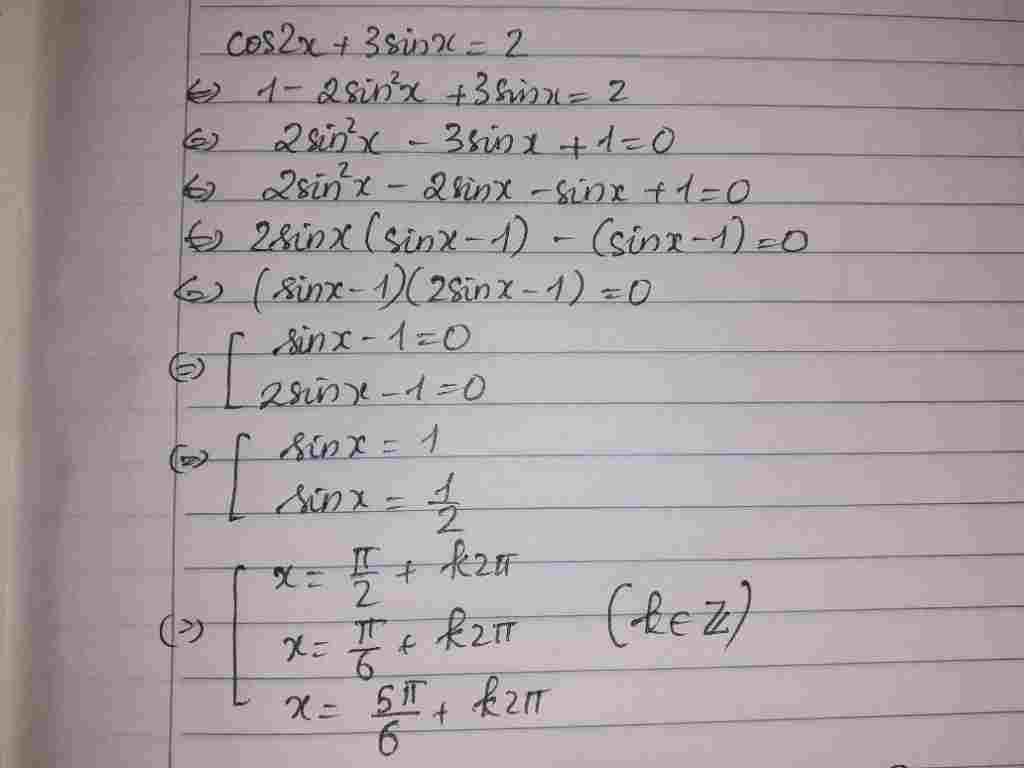 cos2x + 3sinx = 2
⇔ 1 - 2sin²x + 3sinx = 2
⇔ 2sin²x - 3sinx + 1 = 0
⇔ 2sin²x - 2sinx - sinx + 1 = 0
⇔ 2sinx(sinx - 1) - (sinx - 1) = 0
⇔ (sinx - 1)(2sinx - 1) = 0
⇔ [ sinx - 1 = 0
2sinx - 1 = 0
⇔ [ sinx = 1
sinx = 1/2
⇔ [ x = π/2 + k2π
x = π/6 + k2π (k ∈ ℤ)
x = 5π/6 + k2π